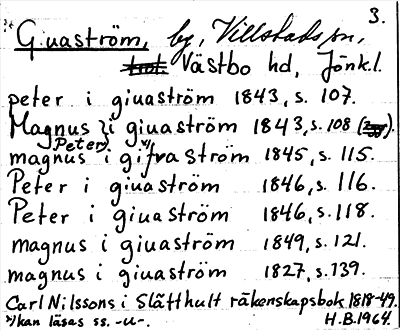 3.
*⁾ Giuaström, by, Villstads sn,
Västbo hd, Jönk.l.
peter i giuaström 1843, s. 107.
Magnus } i giuaström 1843, s. 108
Peter
magnus i gifvaström 1845, s. 115.
Peter i giuaström 1846, s. 116.
Peter i giuaström 1846, s. 118.
magnus i giuaström 1849, s. 121.
magnus i giuaström 1827, s. 139.
Carl Nilssons i Slätthult räkenskapsbok 1818-49.
*⁾ kan läsas ss. -u-. H.B. 1964.